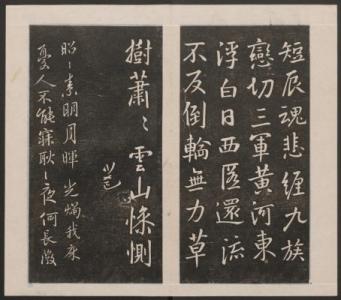 短辰魂悲纏九族
戀切三軍黃河東
浮白日西匿還流
不反倒輪無力草
樹蕭〻雲山慘惻
昭〻素明月暉光燭我床
憂人不能寐耿〻夜何長微